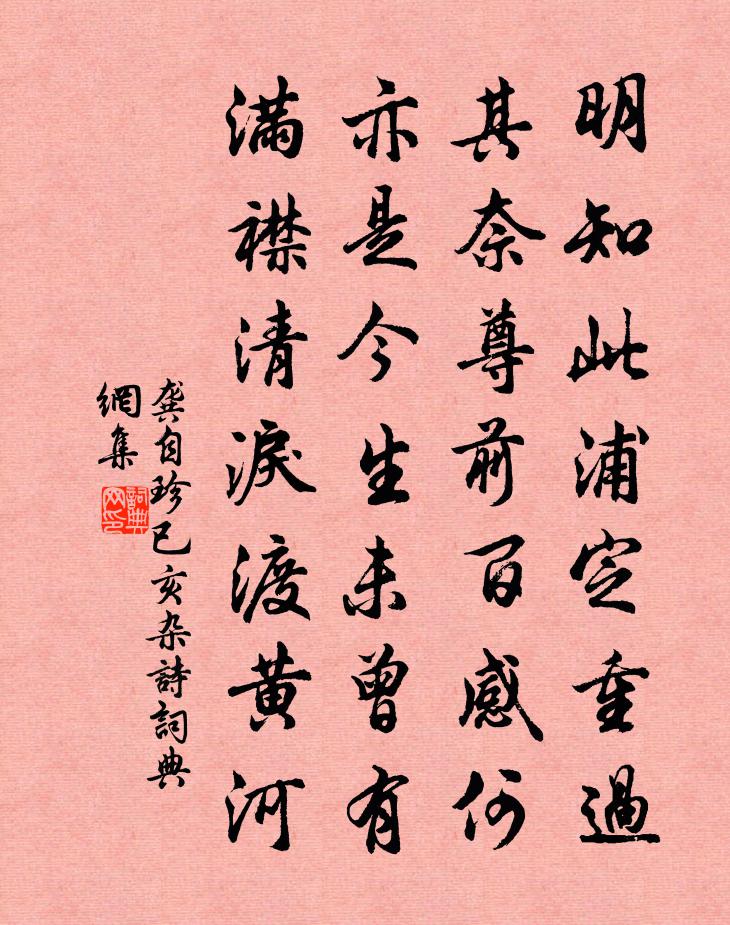 明知此浦定重過
其奈尊前百感何
亦是今生未曾有
满襟清淚渡黄河
龔自珍已亥杂詩詞典
網集
詞典
网印